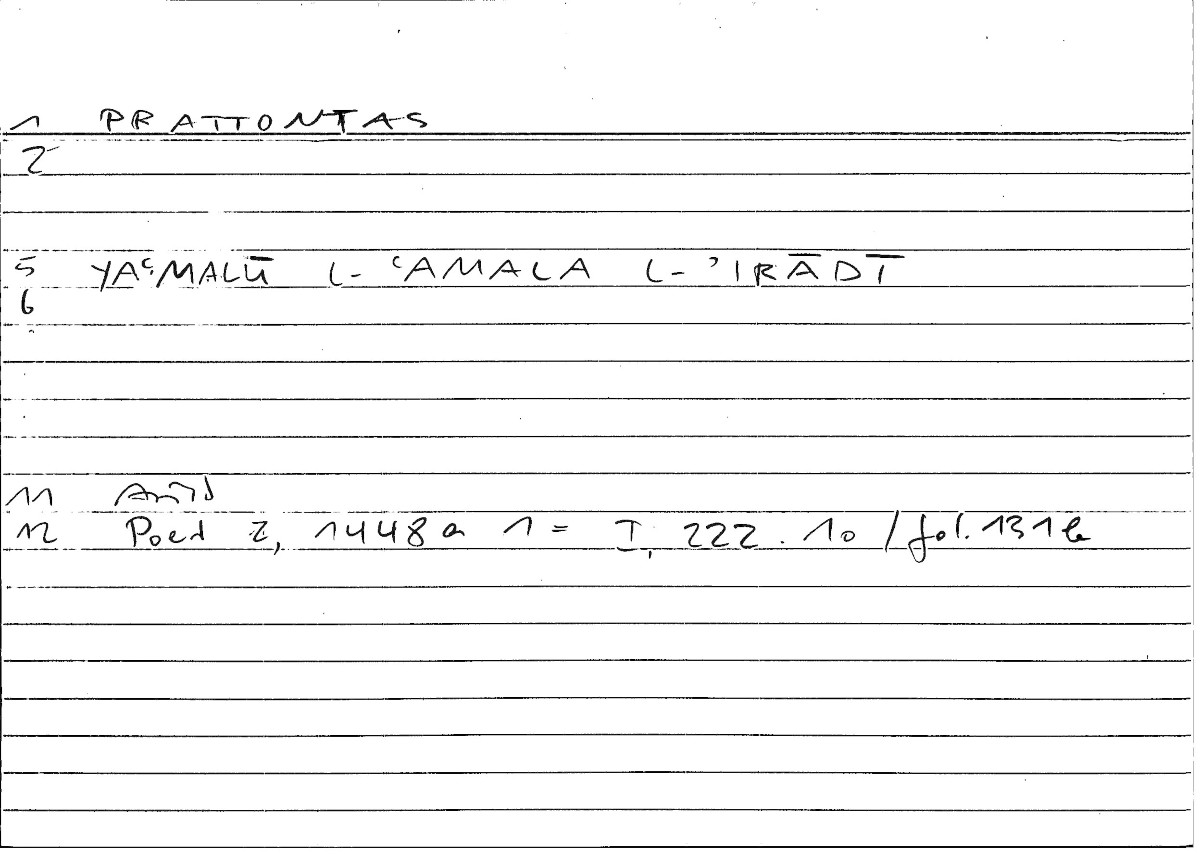 1 PRATTONTAS
2
5 YAʿMALŪ L-ʿAMALA L-ʾIRĀDĪ
6
11 Arist
12 Poet 2, 1448a 1 = I, 222.10 / fol. 131b